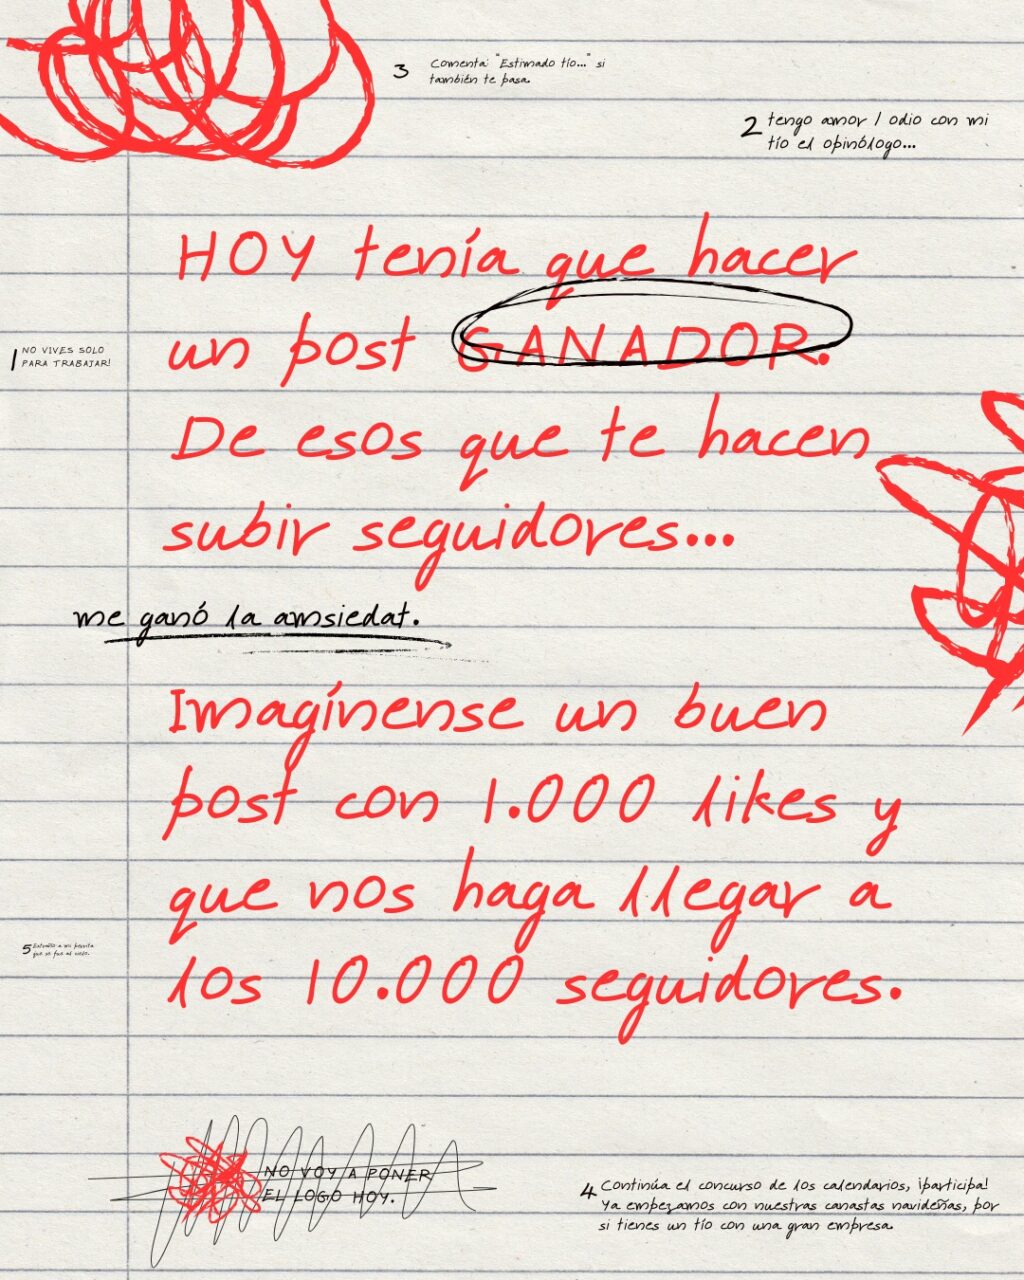 3 Comenta: "Estimado tío..." si
también te pasa.
2 tengo amor / odio con mi
tío el opinólogo...
HOY tenía que hacer
un post GANADOR.
1 NO VIVES SOLO
PARA TRABAJAR!
De esos que te hacen
subir seguidores...
me ganó la amsiedat.
Imagínense un buen
post con 1.000 likes y
que nos haga llegar a
5 Extraño a mi perrita
que se fue al cielo.
los 10.000 seguidores.
NO VOY A PONER
EL LOGO HOY.
4 Continúa el concurso de los calendarios, ¡participa!
Ya empezamos con nuestras canastas navideñas, por
si tienes un tío con una gran empresa.